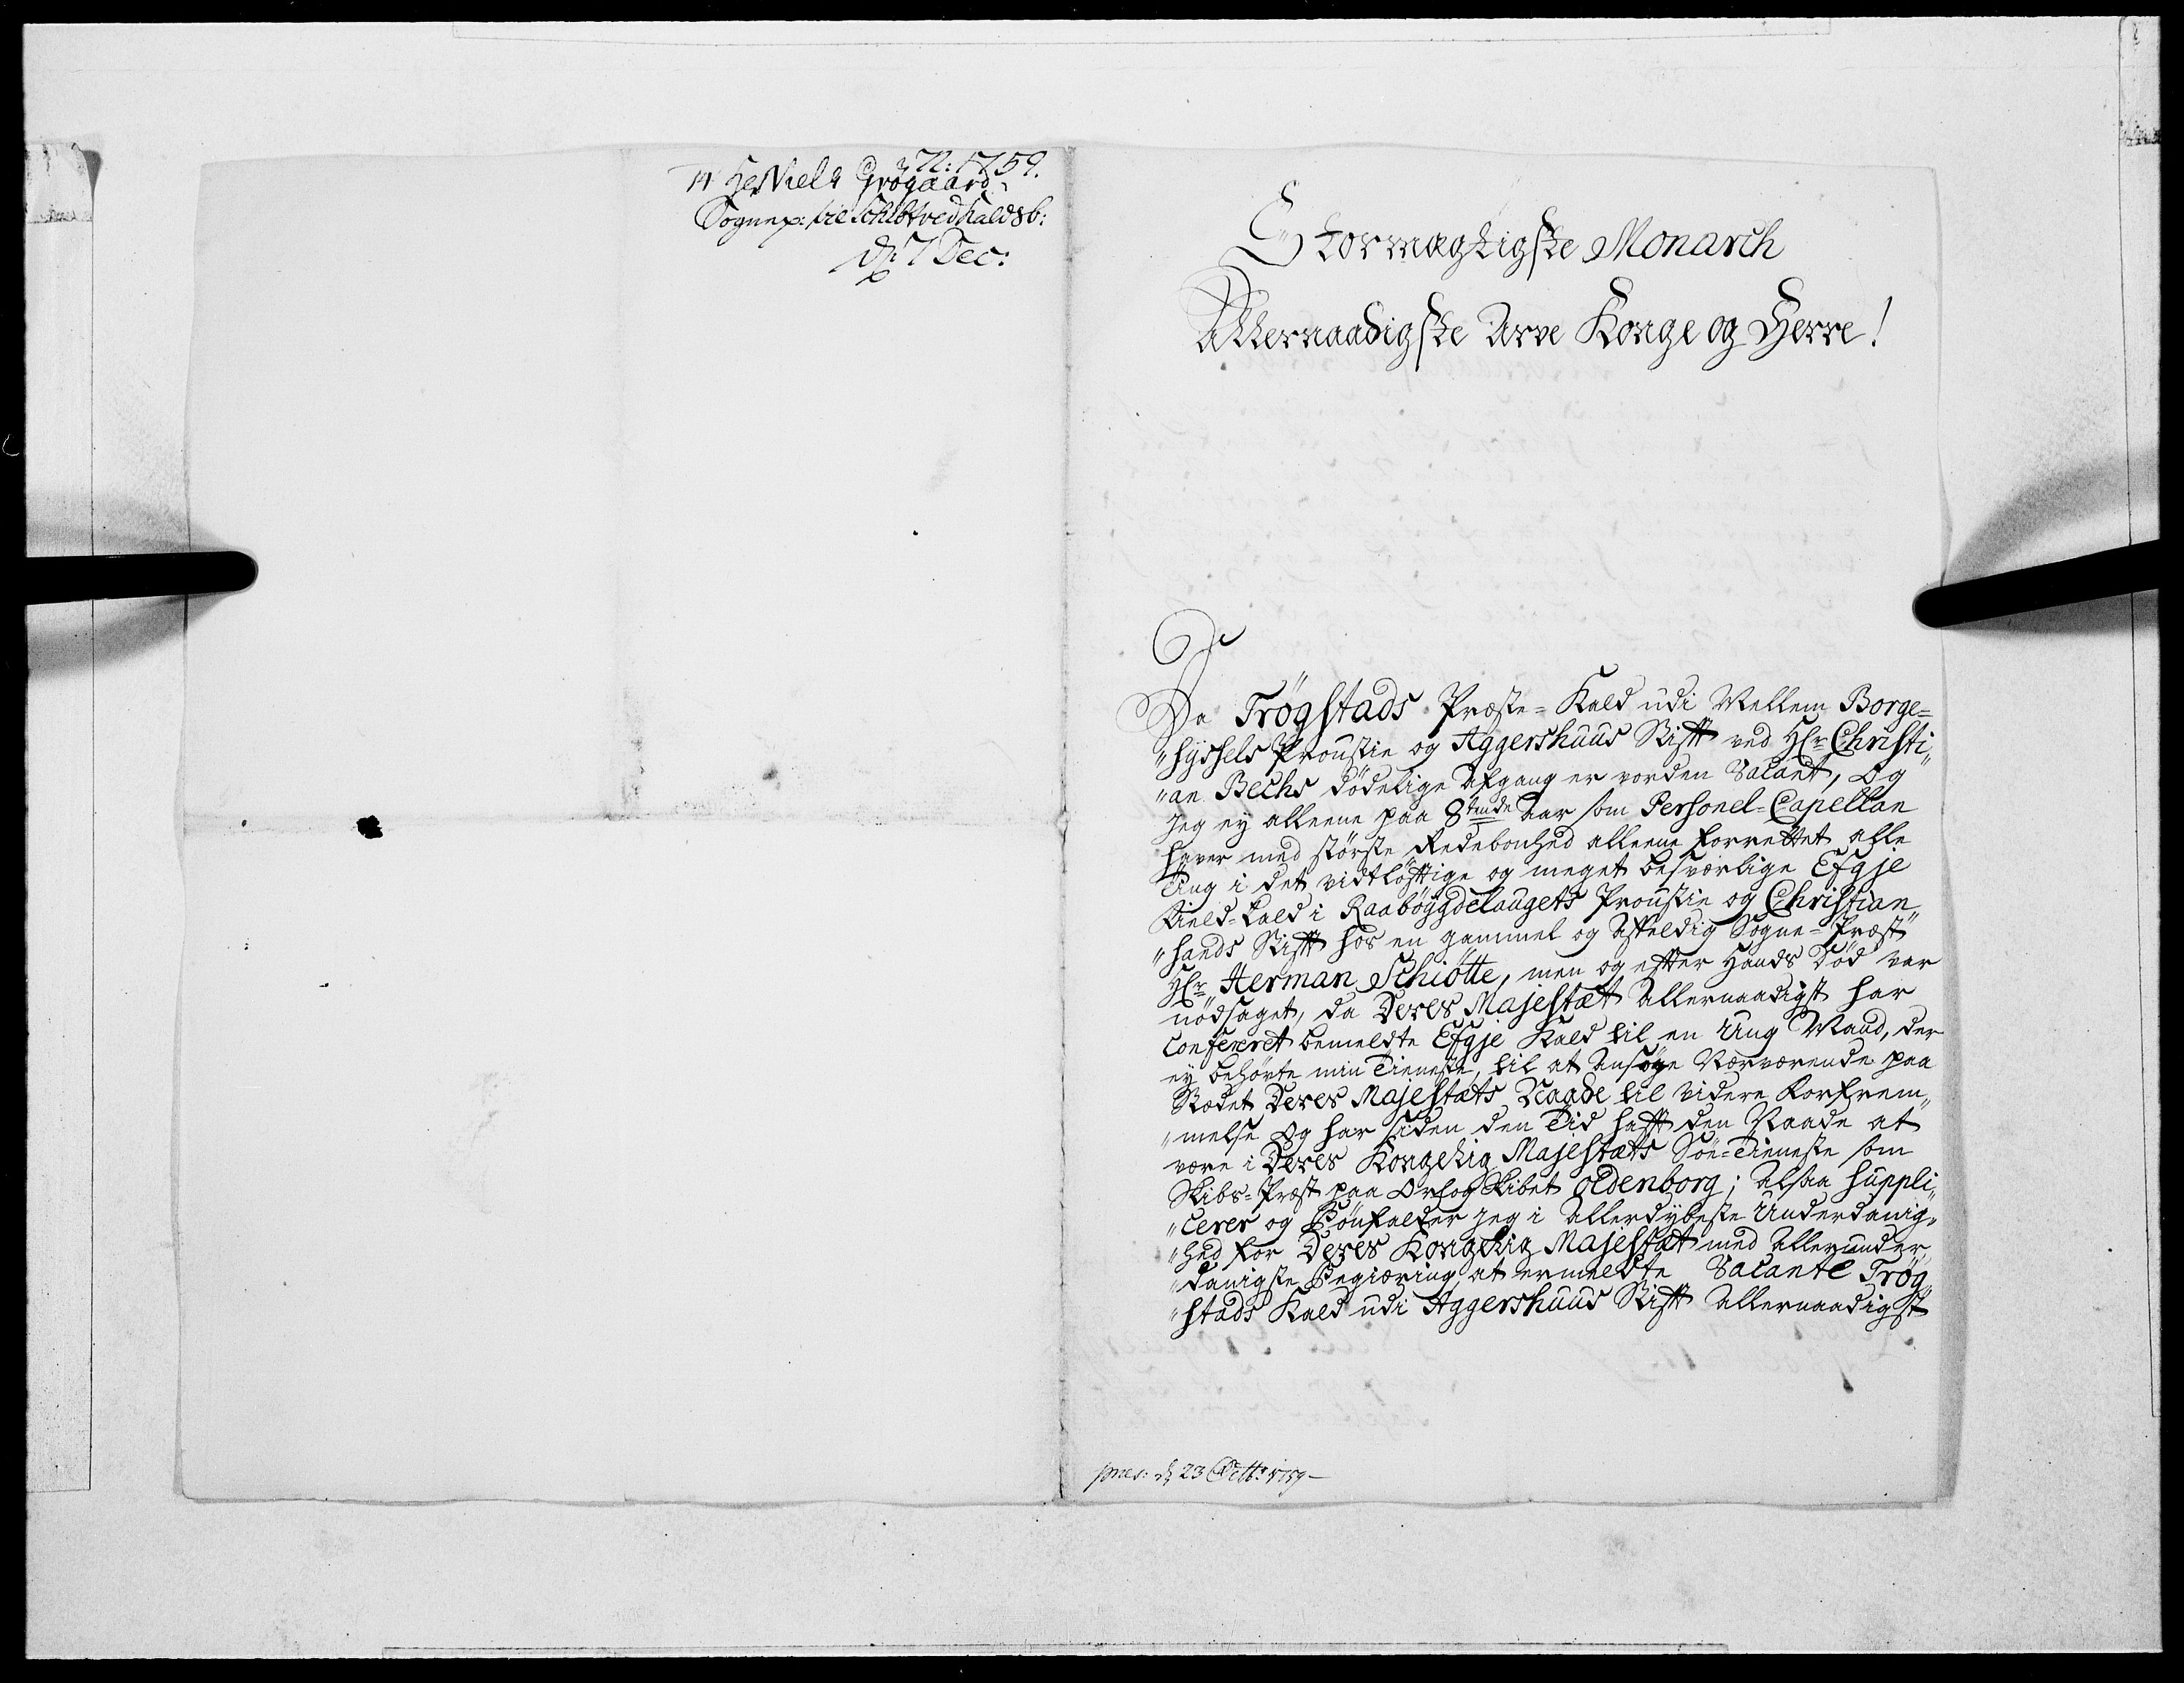 N: 1759.
14 Hr Niels Grögaard
Sognep: til Schibtvedt Kald & b:
d: 7 Dec:
Stormægtigste Monarch
Allernaadigste Arve Konge og Herre!
Da Trögstads Præste-Kald udi Mellem Borge-
"syssels Proustie og Aggershuus Stift ved Hr Christi„
"an Bechs dödelige Afgang er vorden Vacant, Og
jeg ey alleene paa 8tende Aar som Personel-Capellan
haver med störste Redebonhed alleene forrettet alle
Ting i det vidtlöftige og meget besværlige Efgje
Field-Kald i Raabøygdelaugets Proustie og Christian„
"sands Stift hos en gammel og Affeldig Sogne-Præst
Hr Herman Schiötte, men og efter Hands Död var
nödsaget, da Deres Majestæt Allernaadigst har
Confereret bemeldte Efgje Kald til en Ung Mand, der
ey behövte min Tieneste, til at Ansöge Nærværende paa
Stædet Deres Majestæts Naade til videre Forfrem„
"melse Og har siden den Tid haft den Naade at
være i Deres Kongelig Majestæts Söe-Tieneste som
Skibs-Præst paa Orlog Skibet Oldenborg; Altsaa suppli„
"cerer og Bönfalder jeg i Allerdybeste Underdanig„
"hed for Deres Kongelig Majestæt med Allerunder„
"danigste Begiæring, at ermeldte Vacante Trög„
"stads Kald udi Aggershuus Stift Allernaadigst
pres: d 23 Octbr 1759-